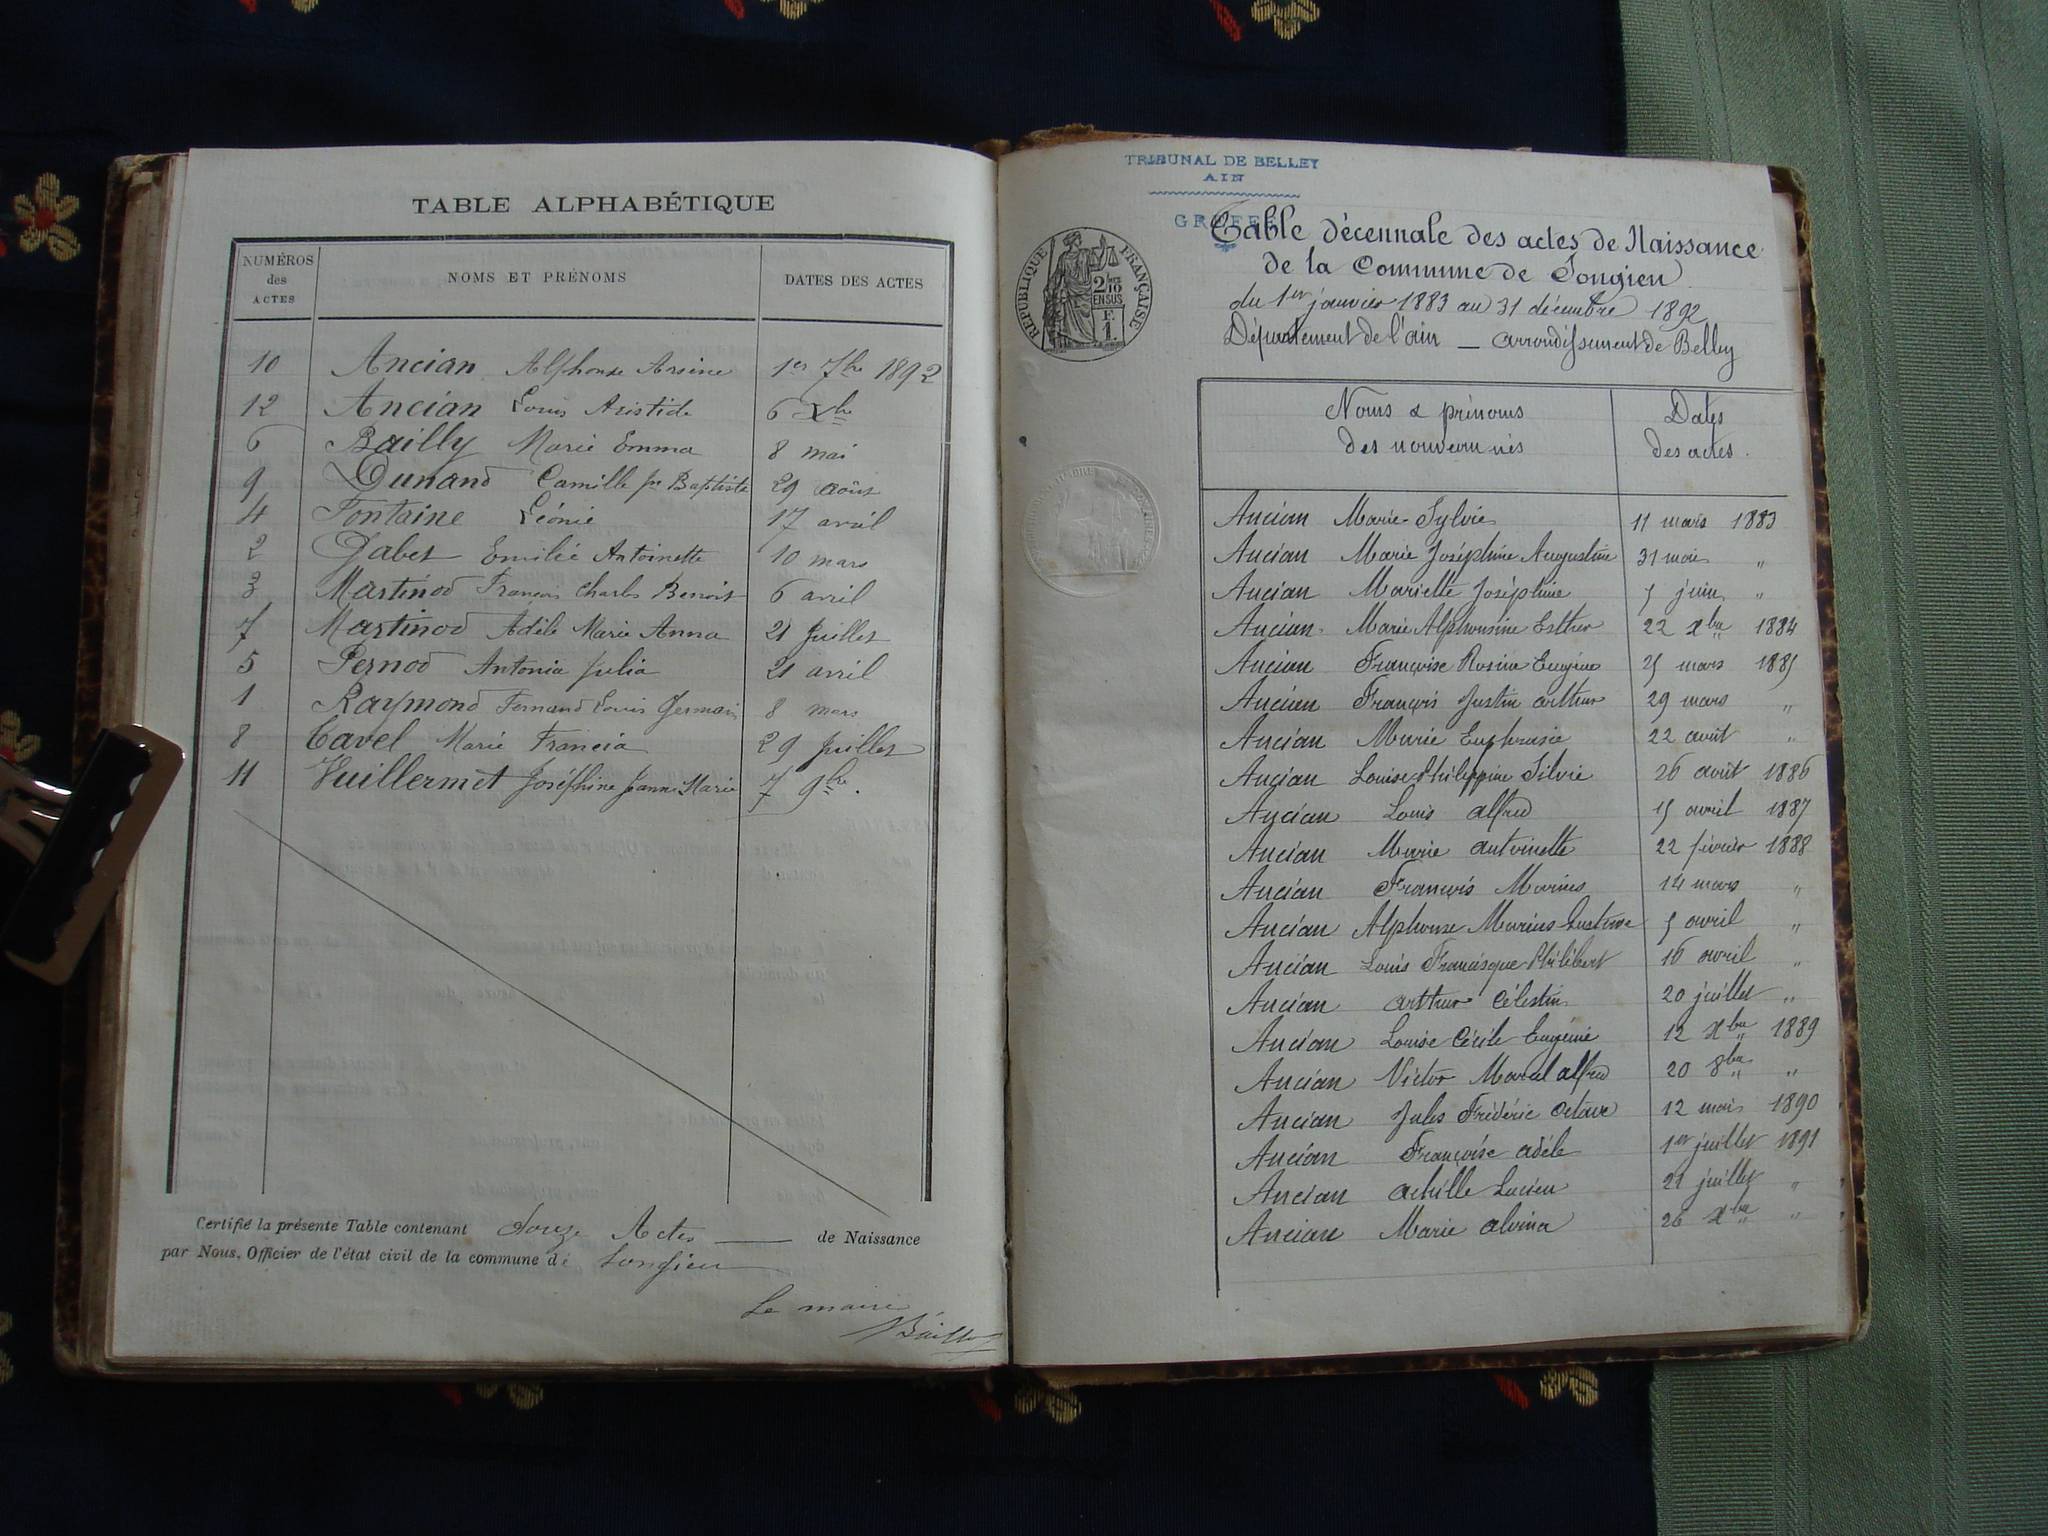 TABLE ALPHABÉTIQUE
NUMÉROS des ACTES NOMS ET PRÉNOMS DATES DES ACTES
10 Ancian Alphonse Arsène 1er 7bre 1892
12 Ancian Louis Aristide 6 Xbre
6 Bailly Marie Emma 8 mai
9 Dunand Camille Jn Baptiste 29 août
4 Fontaine Léonie 17 avril
2 Gabet Emilie Antoinette 10 mars
3 Martinod François Charles Benoit 6 avril
7 Martinod Adèle Marie Anna 21 Juillet
5 Pernod Antonia Julia 21 avril
1 Raymond Fernand Louis Germain 8 mars
8 Cavel Marie Francia 29 Juillet
11 Vuillermet Joséphine Jeanne Marie 7 9bre.
Certifié la présente Table contenant douze Actes de Naissance
par Nous, Officier de l'état civil de la commune de Songieu
Le maire
Bailly
TRIBUNAL DE BELLEY
AIN
GREFFE
RÉPUBLIQUE FRANÇAISE
2/10
EN SUS
F.
1.
Table décennale des actes de Naissance
de la Commune de Songieu
du 1er janvier 1883 au 31 décembre 1892
Département de l'ain — arrondissement de Belley
Noms & prénoms Dates
des nouveau nés des actes.
Ancian Marie Sylvie 11 mars 1883
Ancian Marie Joséphine Augustine 31 mai „
Ancian Mariette Joséphine 5 juin „
Ancian Marie Alphonsine Esther 22 Xbre 1884
Ancian Françoise Rosine Eugénie 25 mars 1885
Ancian François Justin arthur 29 mars „
Ancian Marie Euphrasie 22 août „
Ancian Louise Philippine Silvie 26 août 1886
Ancian Louis alfred 15 avril 1887
Ancian Marie antoinette 22 février 1888
Ancian François Marius 14 mars „
Ancian Alphonse Marius Gustave 5 avril „
Ancian Louis Francisque Philibert 16 avril „
Ancian arthur Célestin 20 juillet „
Ancian Louise Cécile Eugénie 12 Xbre 1889
Ancian Victor Marcel alfred 20 8bre „
Ancian Jules Frédéric Octave 12 mai 1890
Ancian Françoise adèle 1er juillet 1891
Ancian achille Lucien 21 juillet „
Ancian Marie alvina 26 Xbre „